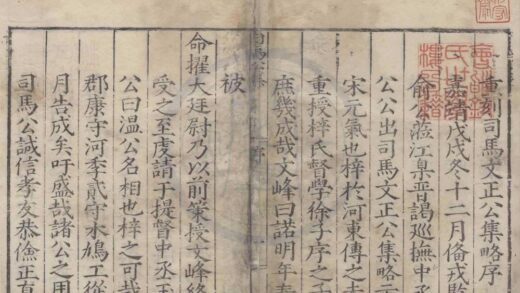 重刻司馬文正公集略序
嘉靖戊戌冬十二月俻戎監
俞公蒞江臬晋謁巡撫中
公公出司馬文正公集略示
宋元氣也梓於河東傳之未
重授梓氏督學徐子序之予
庶幾成哉文峰曰諾明年春
被
命擢大廷尉乃以前策授文峰終
受之至虔請于提督中丞王
公曰温公名相也梓之可哉
郡康守河季貳守水鳩工從
月告成矣吁盛哉諸公之用
司馬公誠信孝友恭儉正有